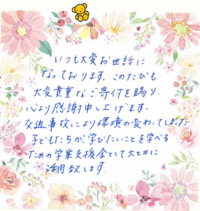 いつも大変お世話に
なっております。このたびも
大変貴重なご寄付を賜り、
心より感謝申し上げます。
交通事故により環境の変わってしまった
子どもたちが学びたいことを学べる
ための学業支援金として大切に
活用致します。